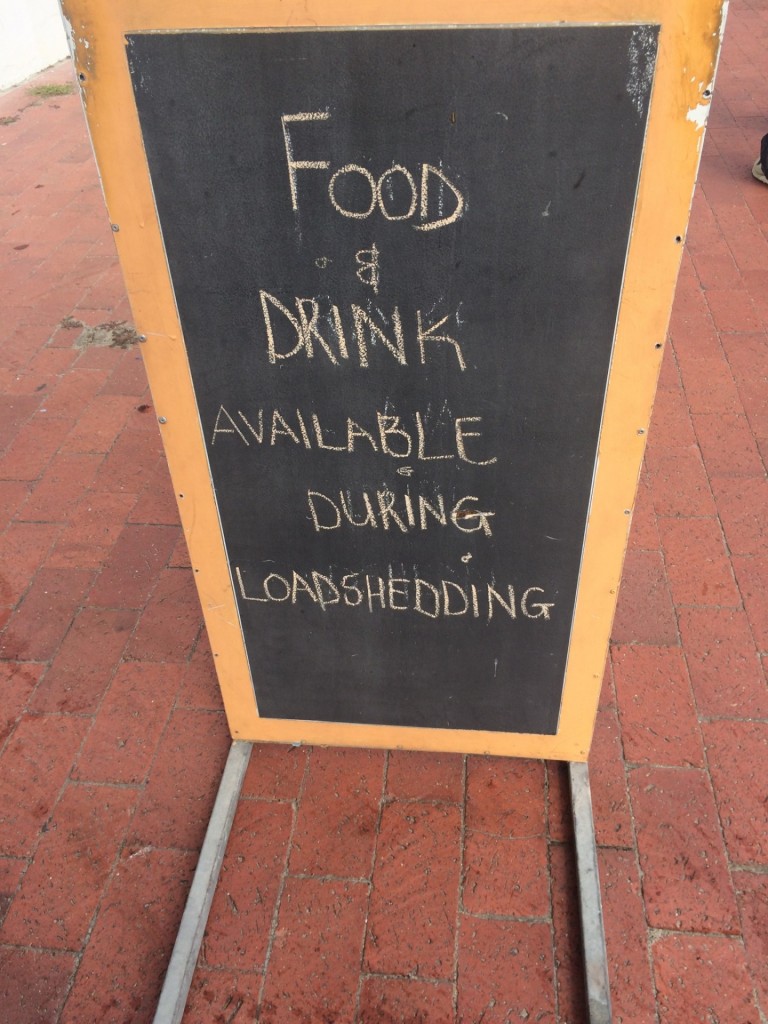 FOOD
&
DRINK
AVAILABLE
DURING
LOADSHEDDING